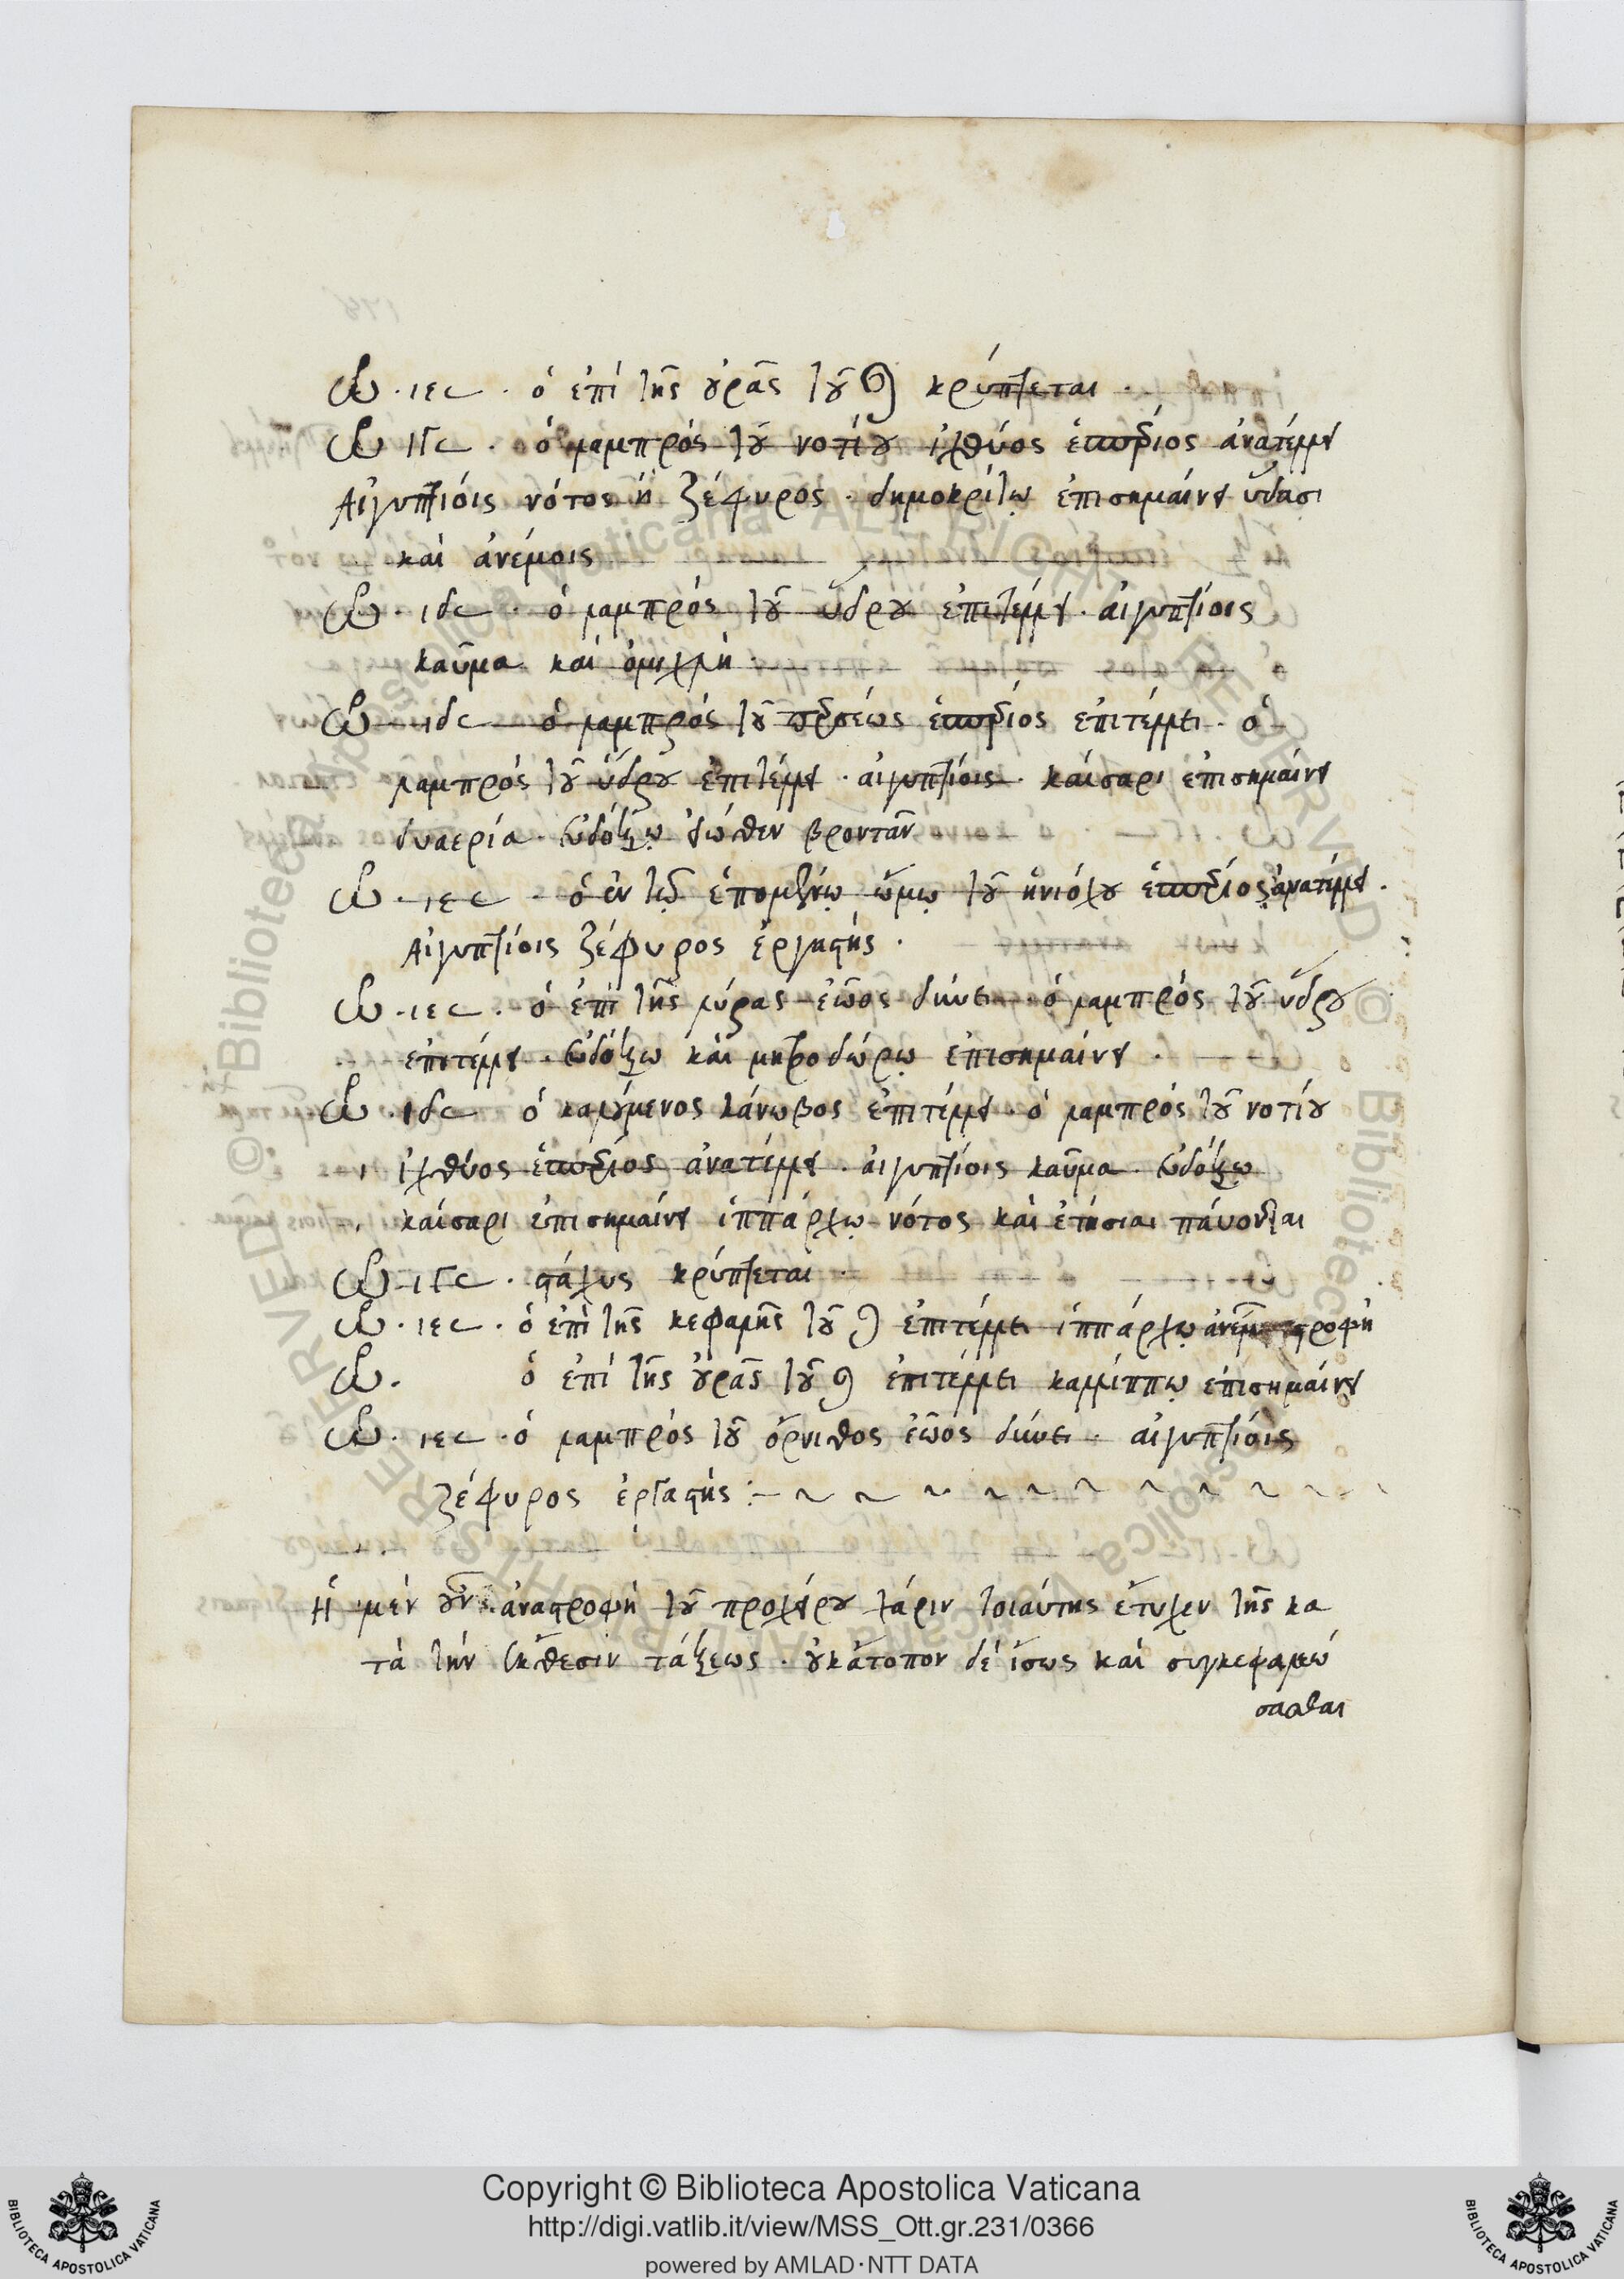 ὡ · ιε 𐅵 · ὁ ἐπὶ τῆς οὐρᾶς τοῦ κρύπτεται ·
ὡ ιγ 𐅵 · ὁ λαμπρὸς τοῦ νοτίου ἰχθύος ἑσπέριος ἀνατέλλει
Αἰγυπτίοις νότος ἢ ζέφυρος · δημοκρίτῳ ἐπισημαίνει ὕδασι
καὶ ἀνέμοις
ὡ · ιδ 𐅵 · ὁ λαμπρὸς τοῦ ὕδρου ἐπιτέλλει · αἰγυπτίοις
καῦμα καὶ ὀμιχλὴ ·
ὡ ιδ 𐅵 ὁ λαμπρὸς τοῦ περσέως ἑσπέριος ἐπιτέλλει · ὁ
λαμπρὸς τοῦ ὕδρου ἐπιτέλλει · αἰγυπτίοις · καίσαρι ἐπισημαίνει
δυαερία · εὐδόξῳ ἔωθεν βροντᾶν
ὡ · ιε 𐅵 · ὁ ἐν τῷ ἑπομένῳ ὤμῳ τοῦ ἡνιόχου ἑσπέριος ἀνατέλλει ·
Αἰγυπτίοις ζέφυρος ἐργαστής ·
ὡ · ιε 𐅵 · ὁ ἐπὶ τῆς λύρας ἑῷος δύνει · ὁ λαμπρὸς τοῦ ὕδρου
ἐπιτέλλει · εὐδόξω καὶ μητροδώρῳ ἐπισημαίνει ·
ὡ · ιδ 𐅵 ὁ καλούμενος κάνωβος ἐπιτέλλει · ὁ λαμπρὸς τοῦ νοτίου
ἰχθύος ἑσπέριος ἀνατέλλει · αἰγυπτίοις καῦμα · εὐδόξω
καίσαρι ἐπισημαίνει ἱππάρχῳ νότος καὶ ἐτήσιαι πάυονται
ὡ ιγ 𐅵 · στάχυς κρύπτεται ·
ὡ · ιε 𐅵 · ὁ ἐπὶ τῆς κεφαλῆς τοῦ ἐπιτέλλει ἱππάρχῳ
ὡ · ὁ ἐπὶ τῆς οὐρᾶς τοῦ ἐπιτέλλει καλλίππῳ ἐπισημαίνει
ὡ · ιε 𐅵 · ὁ λαμπρὸς τοῦ ὄρνιθος ἑῷος δύνει · αἰγυπτίοις
ζέφυρος ἐργαστής :– ~ ~ ~ ~ ~ ~ ~ ~ ~ ~
Ἡ μὲν οὖν ἀναστροφὴ τοῦ προχείρου χάριν τοιαύτης ἔτυχεν τῆς κα
τὰ τὴν ἔκθεσιν τάξεως · οὐκ ἄτοπον δὲ ἴσως καὶ συγκεφαλαιώ
σασθαι
Copyright © Biblioteca Apostolica Vaticana
http://digi.vatlib.it/view/MSS_Ott.gr.231/0366
powered by AMLAD·NTT DATA